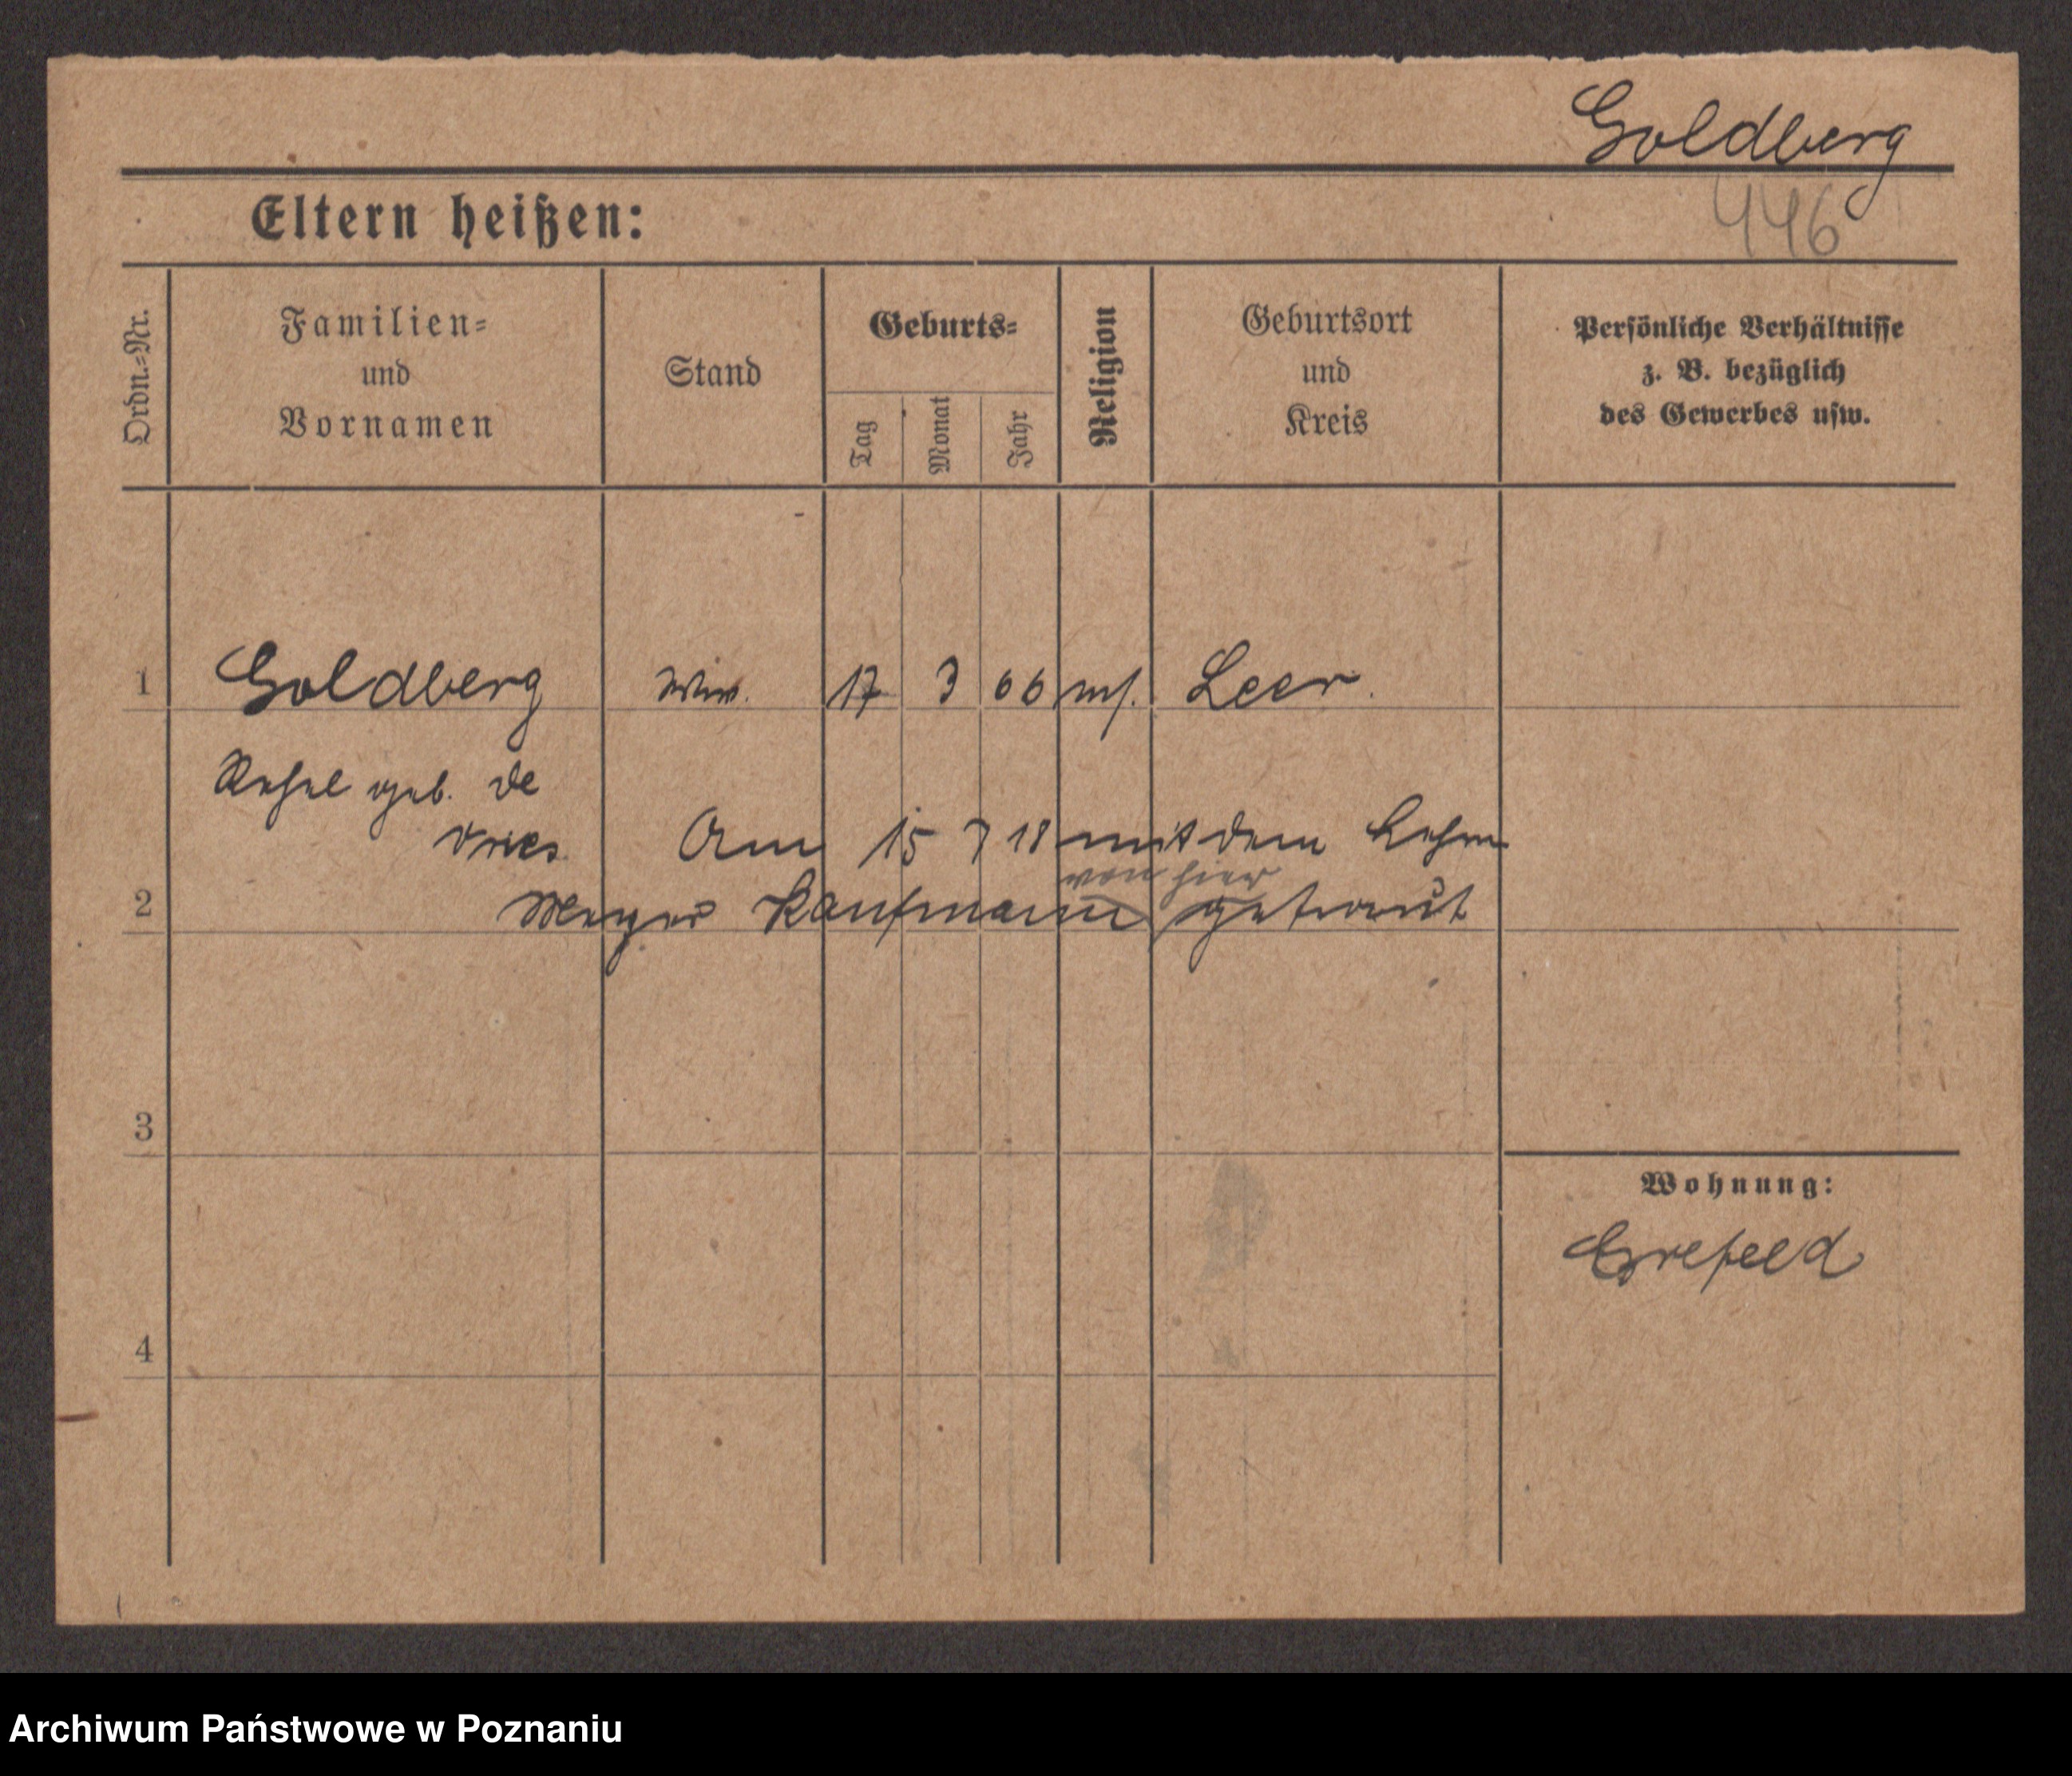 Goldberg
446
Eltern heißen:
Ordn.=Nr.
Familien=
und
Vornamen
Stand
Geburts=
Tag
Monat
Jahr
Religion
Geburtsort
und
Kreis
Persönliche Verhältnisse
z. B. bezüglich
des Gewerbes usw.
1 Goldberg Wwe. 17 3 66 mos. Leer.
geb. de
Vries
Am 15 7 18 mit dem
von hier
2 Meyer Kaufmann getraut
3
Wohnung:
Crefeld
4
Archiwum Państwowe w Poznaniu